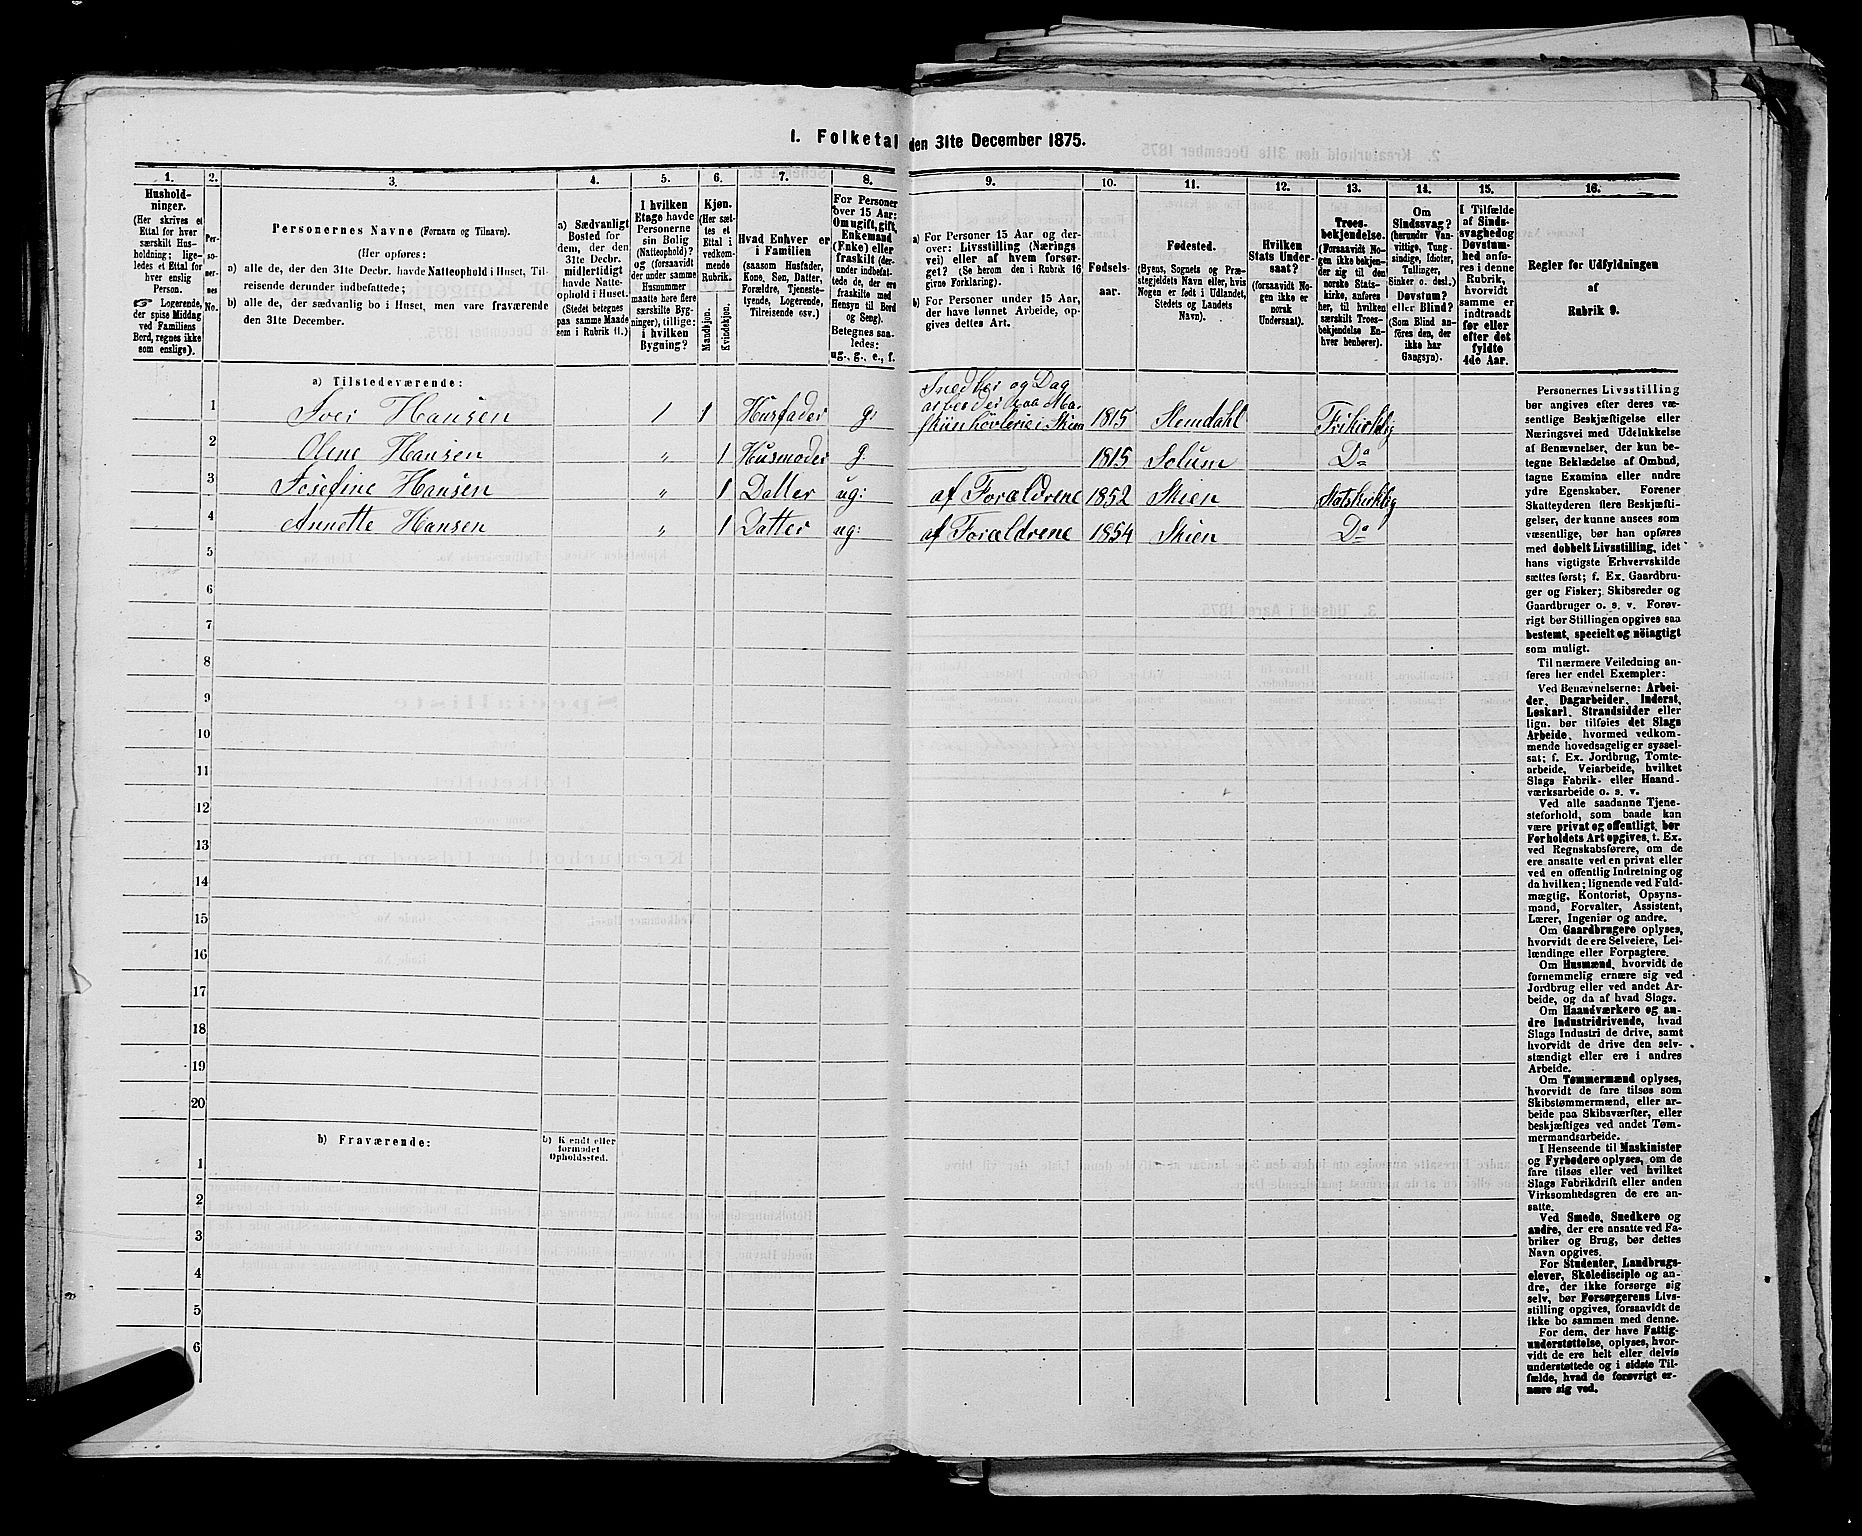 I. Folketal den 31te December 1875.
1.
Husholdninger.
(Her skrives et
Ettal for hver
særskilt Husholdning;
ligeledes et Ettal for
hver enslig
Person.
☞ Logerende,
der spise Middag
ved Familiens
Bord, regnes ikke
som enslige).
2.
Personernes
No.
3.
Personernes Navne (Fornavn og Tilnavn).
(Her opføres:
a) alle de, der den 31te Decbr. havde Natteophold i Huset, Tilreisende derunder indbefattede;
b) alle de, der sædvanlig bo i Huset, men vare fraværende
den 31te December.
4.
a) Sædvanligt
Bosted for
dem, der den
31te Decbr.
midlertidigt
havde Natteophold i Huset.
(Stedet betegnes
paa samme Maade
som i Rubrik 11.)
5.
I hvilken
Etage havde
Personerne
sin Bolig
(Natteophold)?
og (forsaavidt
der under samme
Husnummer
maatte høre flere
særskilte Bygninger), tillige:
i hvilken
Bygning?
6.
Kjøn.
(Her sættes et
Ettal i
vedkommende
Rubrik.
Mandkjøn.
Kvindekjøn.
7.
Hvad Enhver er
i Familien
(saasom Husfader,
Kone, Søn, Datter,
Forældre, Tjenestetyende, Logerende,
Tilreisende osv.)
8.
For Personer
over 15 Aar:
Om ugift, gift,
Enkemand
(Enke) eller
fraskilt (derunder indbefattede de, der ere
fraskilte med
Hensyn til Bord
og Seng).
Betegnes saaledes:
ug., g., e., f.
9.
a) For Personer 15 Aar og derover: Livsstilling (Næringsvei) eller af hvem forsørget? (Se herom den i Rubrik 16
givne Forklaring).
b) For Personer under 15 Aar,
der have lønnet Arbeide, opgives dettes Art.
10.
Fødselsaar.
11.
Fødested.
(Byens, Sognets og Præstegjeldets Navn eller, hvis
Nogen er født i Udlandet,
Stedets og Landets
Navn).
12.
Hvilken
Stats Undersaat?
(forsaavidt Nogen ikke er
norsk
Undersaat).
13.
Troesbekjendelse.
(Forsaavidt Nogen ikke bekjender sig til den
norske Statskirke, anføres
her, til hvilken
særskilt Troesbekjendelse Enhver henhører).
14.
Om
Sindssvag?
(herunder Vanvittige, Tungsindige, Idioter,
Tullinger,
Sinker o. desl.)
Døvstum?
eller Blind?
(Som Blind anføres den, der
ikke har
Gangsyn).
15.
I Tilfælde
af Sindssvaghed og
Døvstumhed anføres i denne
Rubrik,
hvorvidt
samme er
indtraadt
før eller
efter det
fyldte
4de Aar.
16.
Regler for Udfyldningen
af
Rubrik 9.
a) Tilstedeværende:
1 Iver Hansen 1 1 Husfader g: Snedker og Dagarbeider paa Maskinhøvlerie i Skien 1815 Slemdahl Frikirkelig
2 Olene Hansen „ 1 Husmoder g. 1815 Solum Do
3 Josefine Hansen „ 1 Datter ug: af Forældrene 1852 Skien Statskirkelig
4 Annette Hansen „ 1 Datter ug: af Forældrene 1854 Skien Do
5
6
7
8
9
10
11
12
13
14
15
16
17
18
19
20
b) Fraværende:
b) Kjendt eller
formodet
Opholdssted.
1
2
3
4
5
6
Personernes Livsstilling
bør angives efter deres væsentlige Beskjæftigelse eller
Næringsvei med Udelukkelse
af Benævnelser, der kun betegne Beklædelse af Ombud,
tagne Examina eller andre
ydre Egenskaber. Forener
Skatteyderen flere Beskjæftigelser, der kunne ansees som
væsentlige, bør han opføres
med dobbelt Livsstilling, idet
hans vigtigste Erhvervskilde
sættes først; f. Ex. Gaardbruger og Fisker; Skibsreder og
Gaardbruger o. s. v. Forøvrigt bør Stillingen opgives saa
bestemt, specielt og nöiagtigt
som muligt.
Til nærmere Veiledning anføres her endel Exempler:
Ved Benævnelserne: Arbeider, Dagarbeider, Inderst,
Løskarl, Strandsidder eller
lign. bør tilføies det Slags
Arbeide, hvormed vedkommende hovedsagelig er sysselsat; f. Ex. Jordbrug, Tomtearbeide, Veiarbeide, hvilket
Slags Fabrik- eller Haandværksarbeide o. s. v.
Ved alle saadanne Tjenesteforhold, som baade kan
være privat og offentligt, bør
Forholdets Art opgives, t. Ex.
ved Regnskabsførere, om de
ere ansatte ved en privat eller
ved en offentlig Indretning og
da hvilken; lignende ved Fuldmægtig, Kontorist, Opsynsmand, Forvalter, Assistent,
Lærer, Ingeniør og andre.
Om Gaardbrugere oplyses,
hvorvidt de ere Selveiere, Leilændinge eller Forpagtere.
Om Husmænd, hvorvidt de
fornemmelig ernære sig ved
Jordbrug eller ved andet Arbeide, og da af hvad Slags.
Om Haandværkere og andre Industridrivende, hvad
Slags Industri de drive, samt
hvorvidt de drive den selvstændigt eller ere i andres
Arbeide.
Om Tømmermænd oplyses,
hvorvidt de fare tilsøs som
Skibstømmermænd, eller arbeide paa Skibsværfter, eller
beskjæftiges ved andet Tømmermandsarbeide.
I Henseende til Maskinister
og Fyrbødere oplyses, om de
fare tilsøs eller ved hvilket
Slags Fabrikdrift eller anden
Virksomhedsgren de ere ansatte.
Ved Smede, Snedkere og
andre, der ere ansatte ved Fabriker og Brug, bør dettes
Navn opgives.
For Studenter, Landbrugselever, Skoledisciple og andre, der ikke forsørge sig
selv, bør Forsørgerens Livsstilling opgives, forsaavidt de
ikke bo sammen med denne.
For dem, der have Fattigunderstøttelse, oplyses, hvorvidt de ere helt eller delvis
understøttede og i sidste Tilfælde, hvad de forøvrigt ernære sig ved.